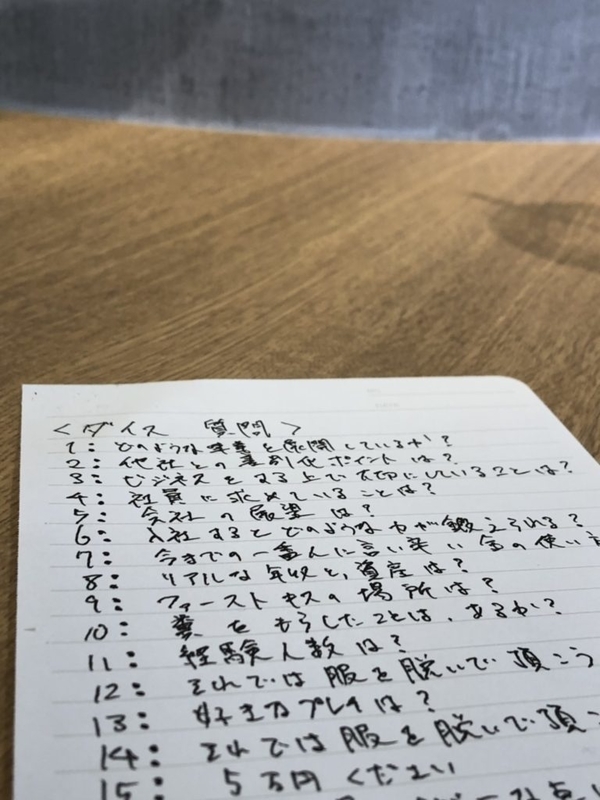 <ダイス 質問>
1: どのような事業を展開しているか?
2: 他社との差別化ポイントは?
3: ビジネスをする上で大切にしていることは?
4: 社員に求めていることは?
5: 会社の展望は?
6: 入社するとどのような力が鍛えられる?
7: 今までの一番人に言い辛い金の使い
8: リアルな年収と、資産は?
9: ファーストキスの場所は?
10: 糞をもらしたことは、あるか?
11: 経験人数は?
12: それでは服を脱いで頂こう
13: 好きなプレイは?
14: それでは服を脱いで頂
15: 5万円ください